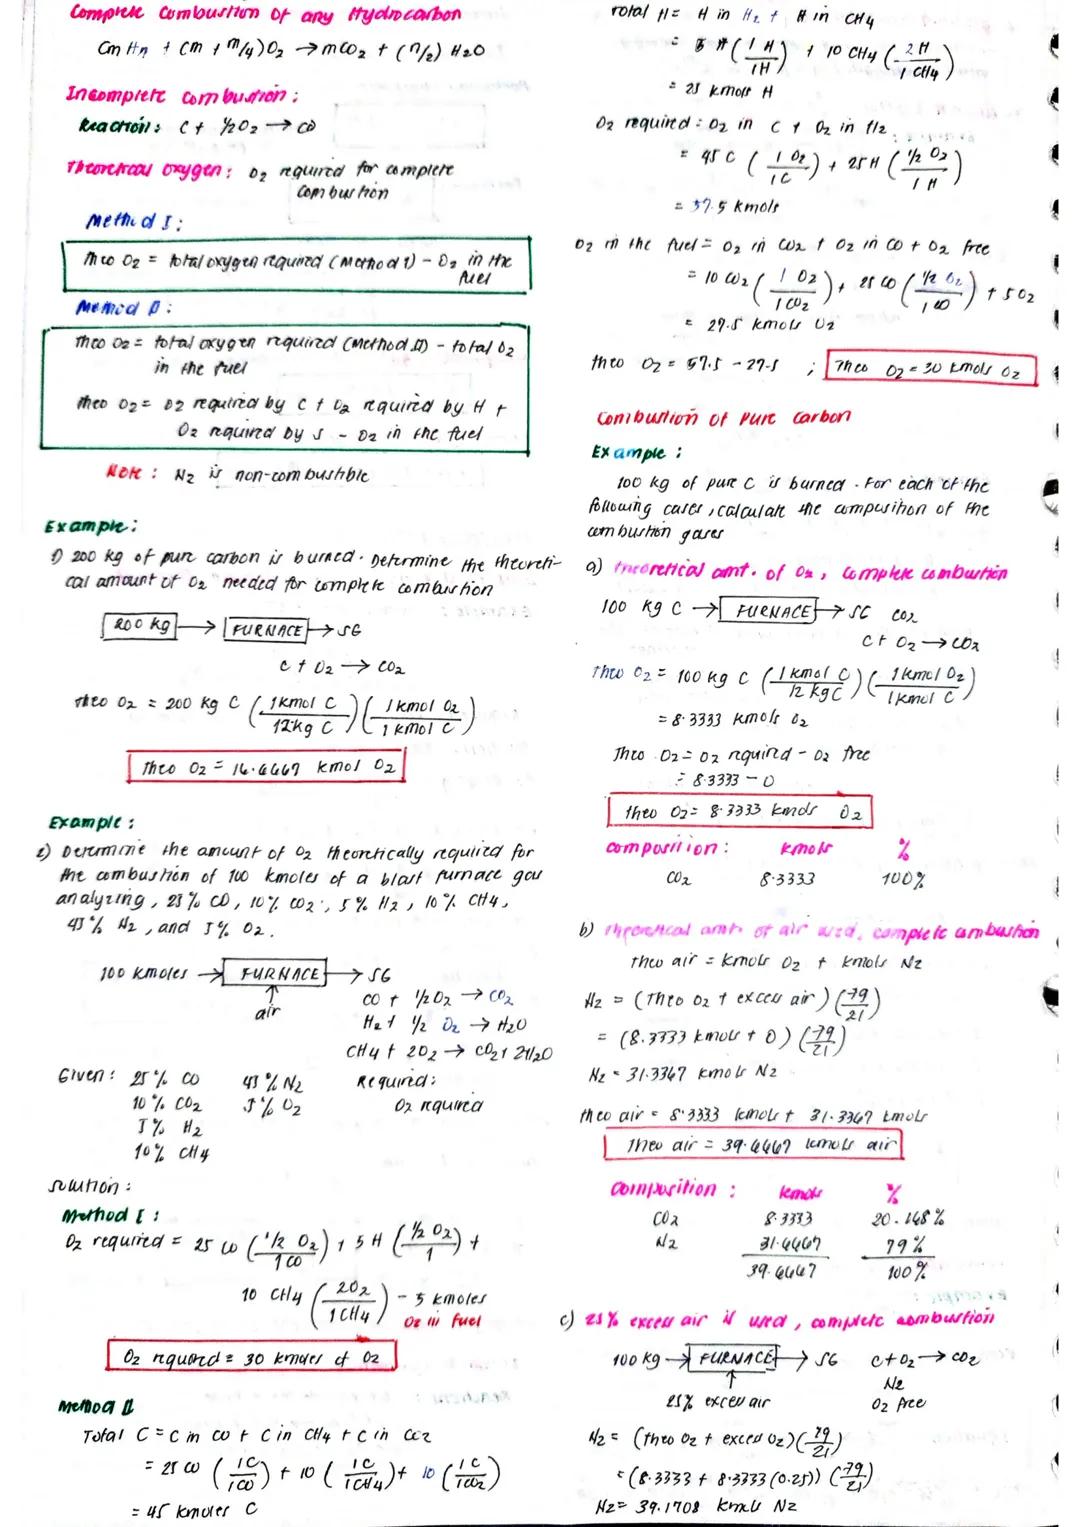 Complete Combustion of any Hydrocarbon
CmHn + (m + n/4)O2 → mCO2 + (n/2) H2O
Incomplete combustion:
Reaction: C + 1/2O2 → CO
Theoretical oxygen: O2 required for complete
combustion
Method I:
Theo O2 = total oxygen required (Method I) - O2 in the
fuel
Method II:
Theo O2 = total oxygen required (Method II) - total O2
in the fuel
Theo O2 = O2 required by C + O2 required by H +
O2 required by S - O2 in the fuel
Note: N2 is non-combustible
Example:
1) 200 kg of pure carbon is burned. Determine the theoreti-
cal amount of O2 needed for complete combustion
200 kg → FURNACE → SG
C + O2 → CO2
Theo O2 = 200 kg C (1 kmol C / 12 kg C) (1 kmol O2 / 1 kmol C)
Theo O2 = 16.6667 kmol O2
Example:
2) Determine the amount of O2 theoretically required for
the combustion of 100 kmoles of a blast furnace gas
analyzing, 25% CO, 10% CO2, 5% H2, 10% CH4,
45% N2, and 5% O2.
100 kmoles → FURNACE → SG
air
CO + 1/2O2 → CO2
H2 + 1/2 O2 → H2O
CH4 + 2O2 → CO2 + 2H2O
Given: 25% CO 45% N2 Required:
10% CO2 5% O2 O2 required
5% H2
10% CH4
Solution:
Method I:
O2 required = 25 CO (1/2 O2 / 1 CO) + 5 H (1/2 O2 / 1) +
10 CH4 (2O2 / 1 CH4) - 5 kmoles
O2 in fuel
O2 required = 30 kmoles of O2
Method II
Total C = C in CO + C in CH4 + C in CO2
= 25 CO (1C / 1CO) + 10 (1C / 1CH4) + 10 (1C / 1CO2)
= 45 kmoles C
Total H = H in H2 + H in CH4
= 5 H (1 H / 1H) + 10 CH4 (2 H / 1 CH4)
= 25 kmols H
O2 required: O2 in C + O2 in H2
= 45 C (1 O2 / 1C) + 25 H (1/2 O2 / 1 H)
= 57.5 kmols
O2 in the fuel = O2 in CO2 + O2 in CO + O2 free
= 10 CO2 (1 O2 / 1 CO2) + 25 CO (1/2 O2 / 1 CO) + 5 O2
= 27.5 kmols O2
Theo O2 = 57.5 - 27.5 ; Theo O2 = 30 kmols O2
Combustion of Pure Carbon
Example:
100 kg of pure C is burned. For each of the
following cases, calculate the composition of the
combustion gases
a) theoretical amt. of O2, complete combustion
100 kg C → FURNACE → SG CO2
C + O2 → CO2
Theo O2 = 100 kg C (1 kmol C / 12 kg C) (1 kmol O2 / 1 kmol C)
= 8.3333 kmols O2
Theo O2 = O2 required - O2 free
= 8.3333 - 0
theo O2 = 8.3333 kmols O2
composition: kmols %
CO2 8.3333 100%
b) theoretical amt. of air used, complete combustion
Theo air = kmols O2 + kmols N2
N2 = (Theo O2 + excess air) (79/21)
= (8.3333 kmols + 0) (79/21)
N2 = 31.3367 kmols N2
theo air = 8.3333 kmols + 31.3367 kmols
Theo air = 39.6667 kmols air
Composition: kmols %
CO2 8.3333 20.168%
N2 31.4467 79%
39.6667 100%
c) 25% excess air is used, complete combustion
100 kg → FURNACE → SG C + O2 → CO2
25% excess air
N2
O2 free
N2 = (theo O2 + excess O2) (79/21)
= (8.3333 + 8.3333 (0.25)) (79/21)
N2 = 39.1708 kmols N2